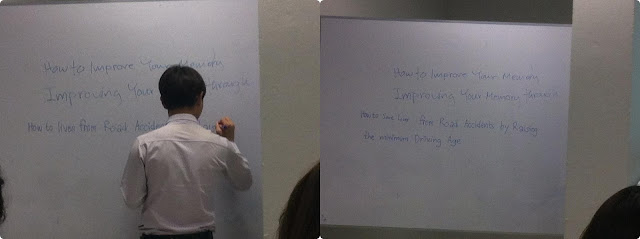 How to Improve Your Memory
Improving Your through
How to lives from Road Accidents
How to Improve Your Memory
Improving Your Memory through
How to Save lives from Road Accidents by Raising
the minimum Driving Age